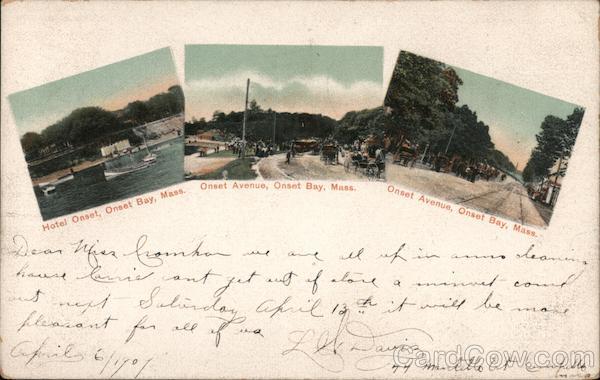 Hotel Onset, Onset Bay, Mass.
Onset Avenue, Onset Bay, Mass.
Onset Avenue, Onset Bay, Mass.
Dear Miss we are all up in arms cleaning
house Carrie cant get out of store a minuet come
out next Saturday April 13th it will be more
pleasant for all of us
L W Davis
April 6/1907
44
CardCow.com